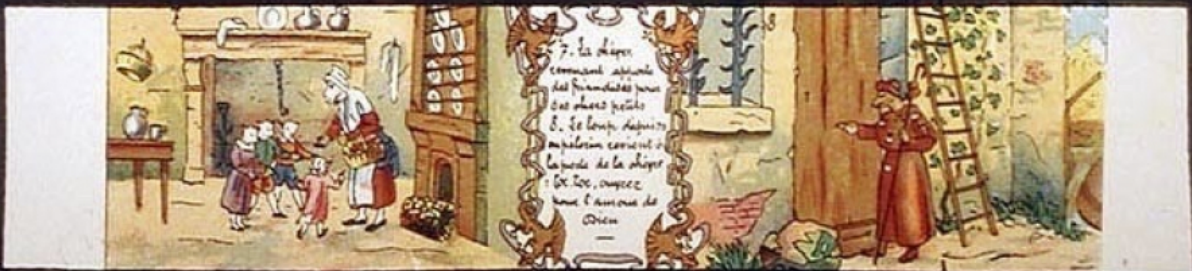 7. La chèvre
revenant apporte
des friandises pour
ses chers petits
8. Le loup déguisé
en pèlerin revient à
la porte de la chèvre
: toc, toc, ouvrez
pour l'amour de
Dieu
8